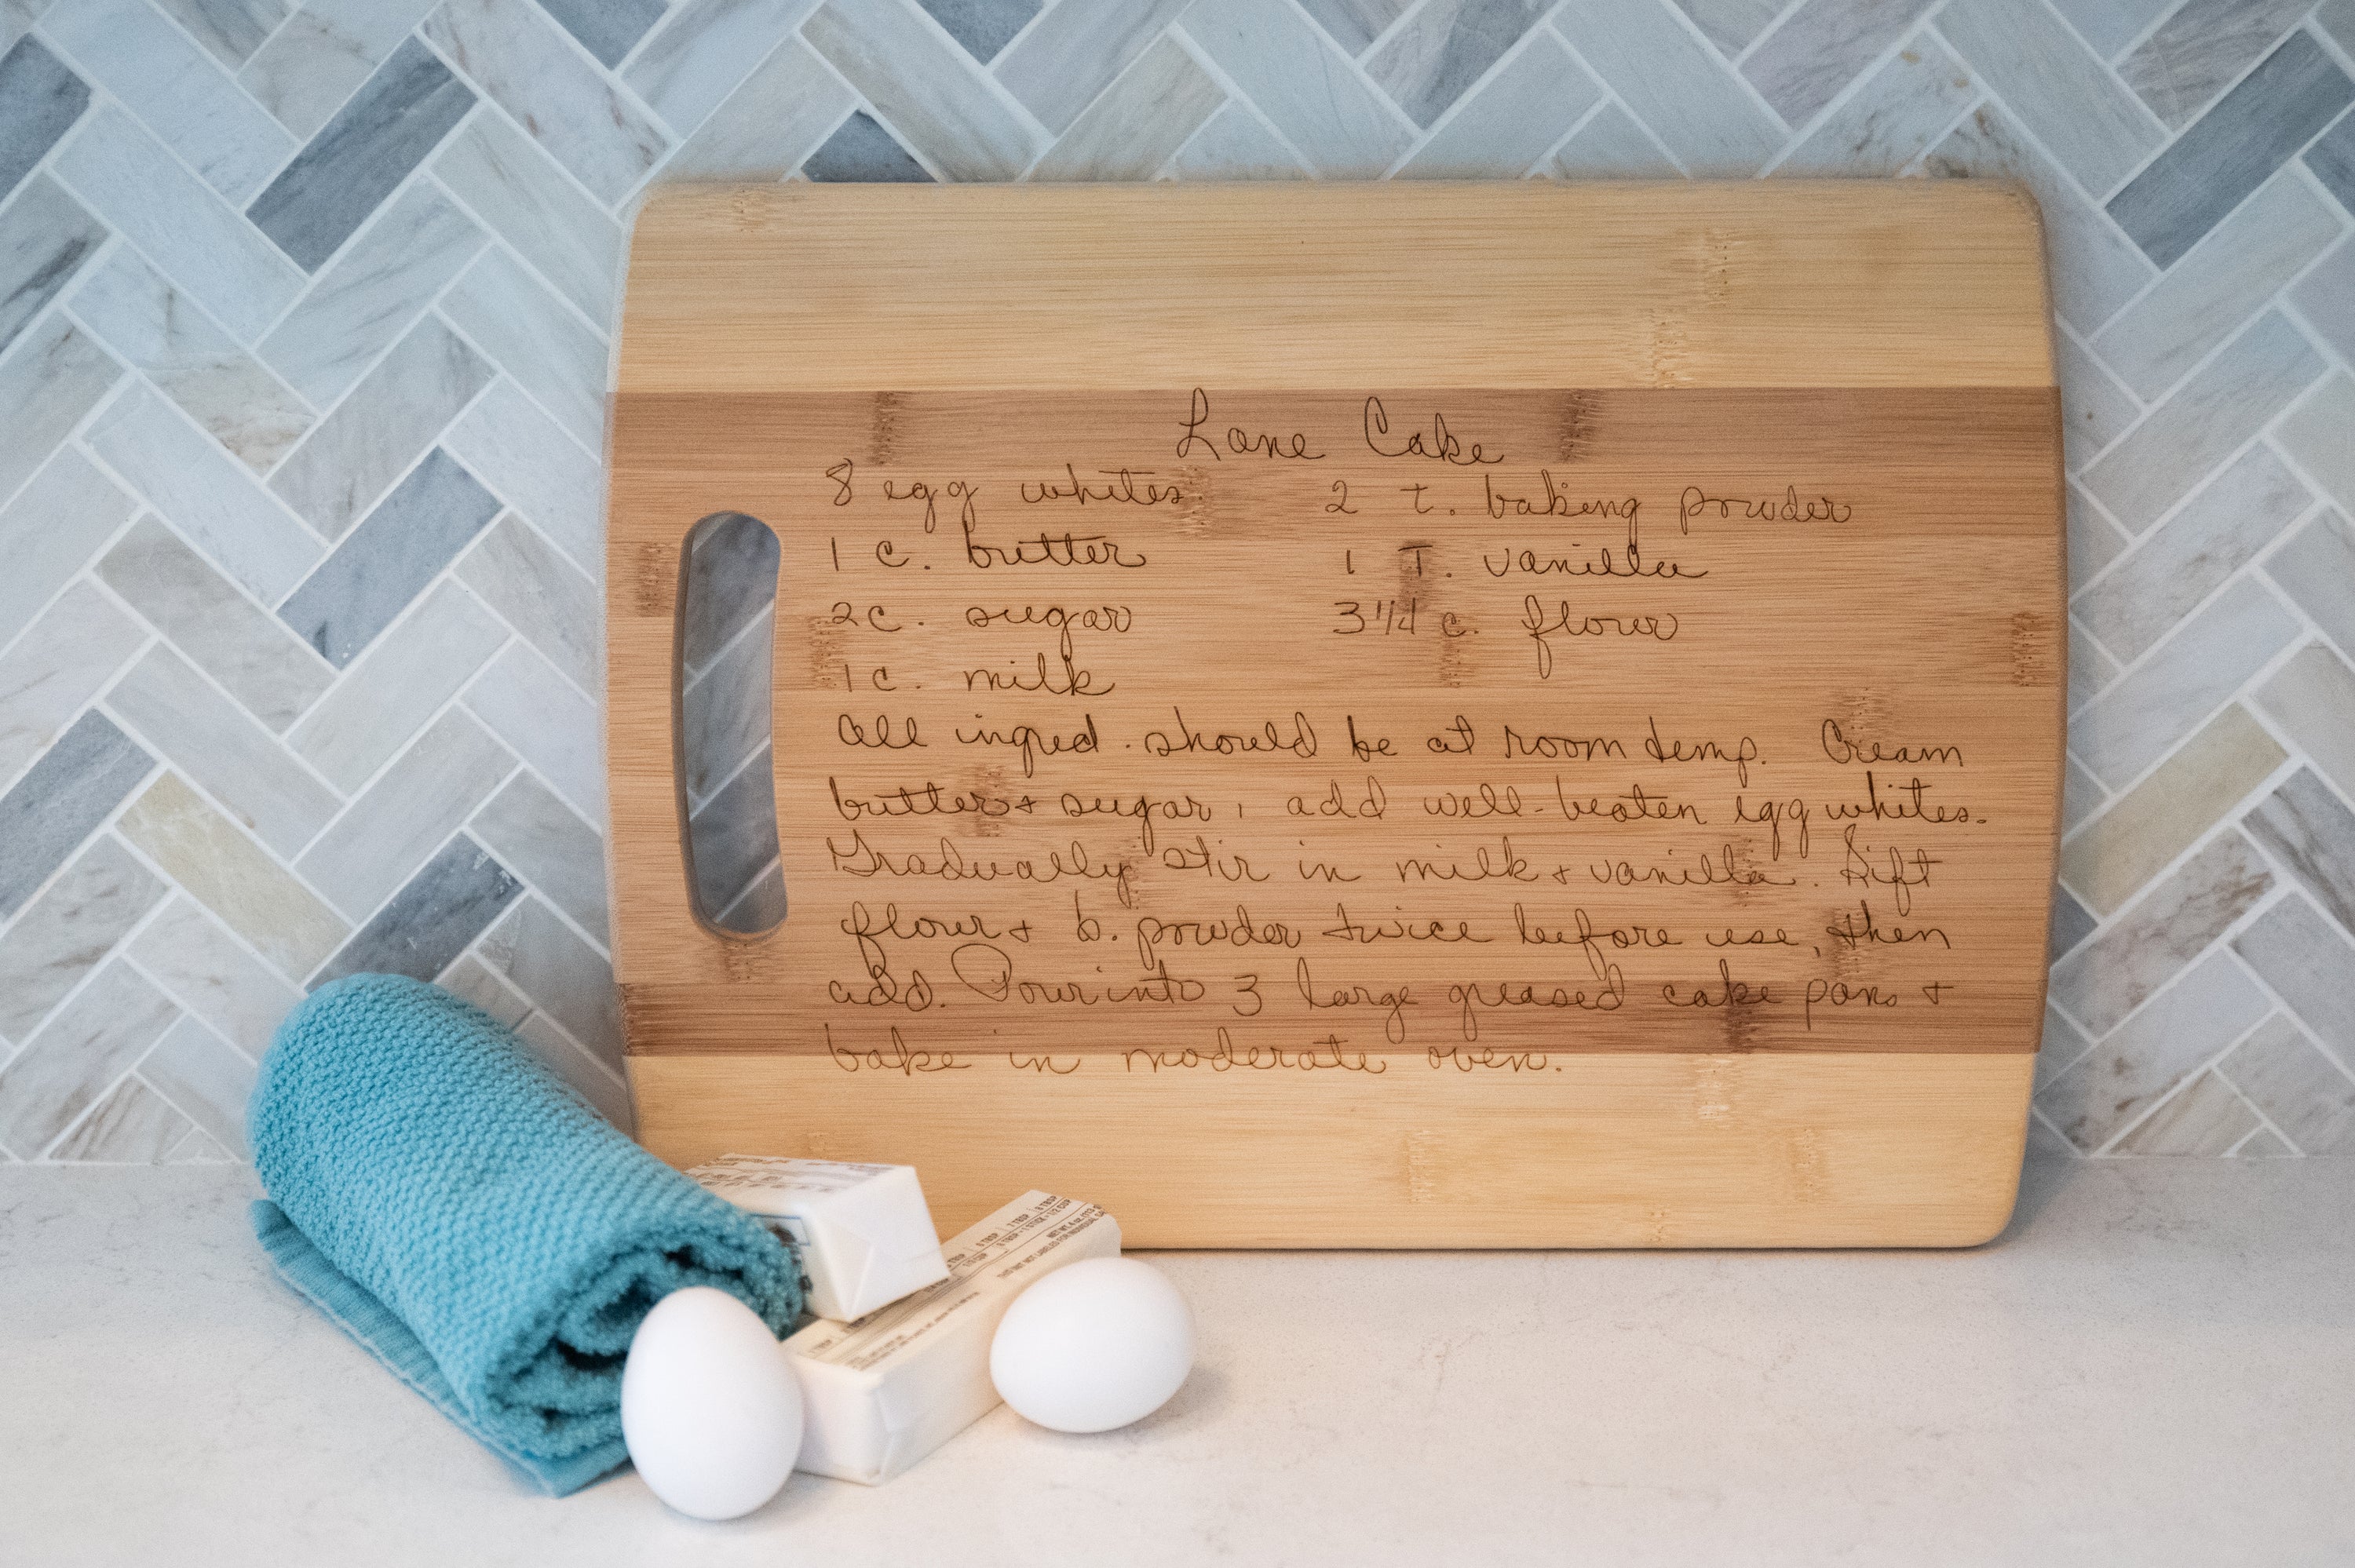 Lane Cake
8 egg whites
1 c. butter
2 c. sugar
1 c. milk
2 t. baking powder
1 T. vanilla
3 1/4 c. flour
All ingred. should be at room temp. Cream
butter + sugar, add well-beaten egg whites.
Gradually stir in milk + vanilla. Sift
flour + b. powder twice before use, then
add. Pour into 3 large greased cake pans +
bake in moderate oven.